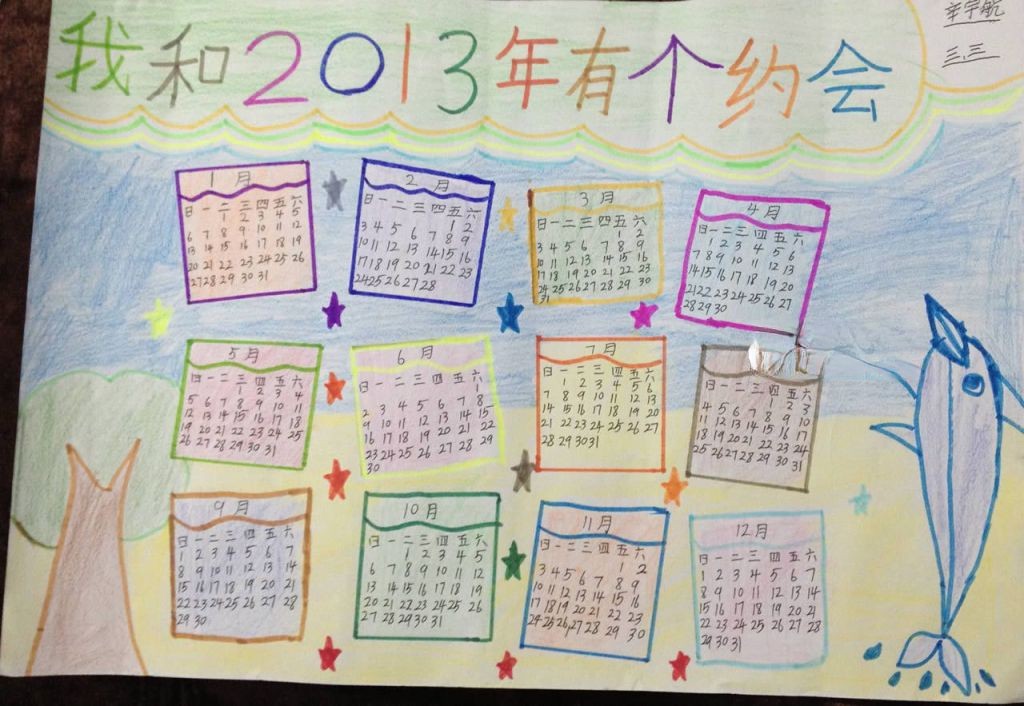 我和2013年有个约会
辛宇航
三.三
1月
日一二三四五六
1 2 3 4 5
6 7 8 9 10 11 12
13 14 15 16 17 18 19
20 21 22 23 24 25 26
27 28 29 30 31
2月
日一二三四五六
1 2
3 4 5 6 7 8 9
10 11 12 13 14 15 16
17 18 19 20 21 22 23
24 25 26 27 28
3月
日一二三四五六
1 2
3 4 5 6 7 8 9
10 11 12 13 14 15 16
17 18 19 20 21 22 23
24 25 26 27 28 29 30
31
4月
日一二三四五六
1 2 3 4 5 6
7 8 9 10 11 12 13
14 15 16 17 18 19 20
21 22 23 24 25 26 27
28 29 30
5月
日一二三四五六
1 2 3 4
5 6 7 8 9 10 11
12 13 14 15 16 17 18
19 20 21 22 23 24 25
26 27 28 29 30 31
6月
日一二三四五六
1
2 3 4 5 6 7 8
9 10 11 12 13 14 15
16 17 18 19 20 21 22
23 24 25 26 27 28 29
30
7月
日一二三四五六
1 2 3 4 5 6
7 8 9 10 11 12 13
14 15 16 17 18 19 20
21 22 23 24 25 26 27
28 29 30 31
日一二三四五六
1 2 3
4 5 6 7 8 9 10
11 12 13 14 15 16 17
18 19 20 21 22 23 24
25 26 27 28 29 30 31
9月
日一二三四五六
1 2 3 4 5 6 7
8 9 10 11 12 13 14
15 16 17 18 19 20 21
22 23 24 25 26 27 28
29 30
10月
日一二三四五六
1 2 3 4 5
6 7 8 9 10 11 12
13 14 15 16 17 18 19
20 21 22 23 24 25 26
27 28 29 30 31
11月
日一二三四五六
1 2
3 4 5 6 7 8 9
10 11 12 13 14 15 16
17 18 19 20 21 22 23
24 25 26 27 28 29 30
12月
日一二三四五六
1 2 3 4 5 6 7
8 9 10 11 12 13 14
15 16 17 18 19 20 21
22 23 24 25 26 27 28
29 30 31